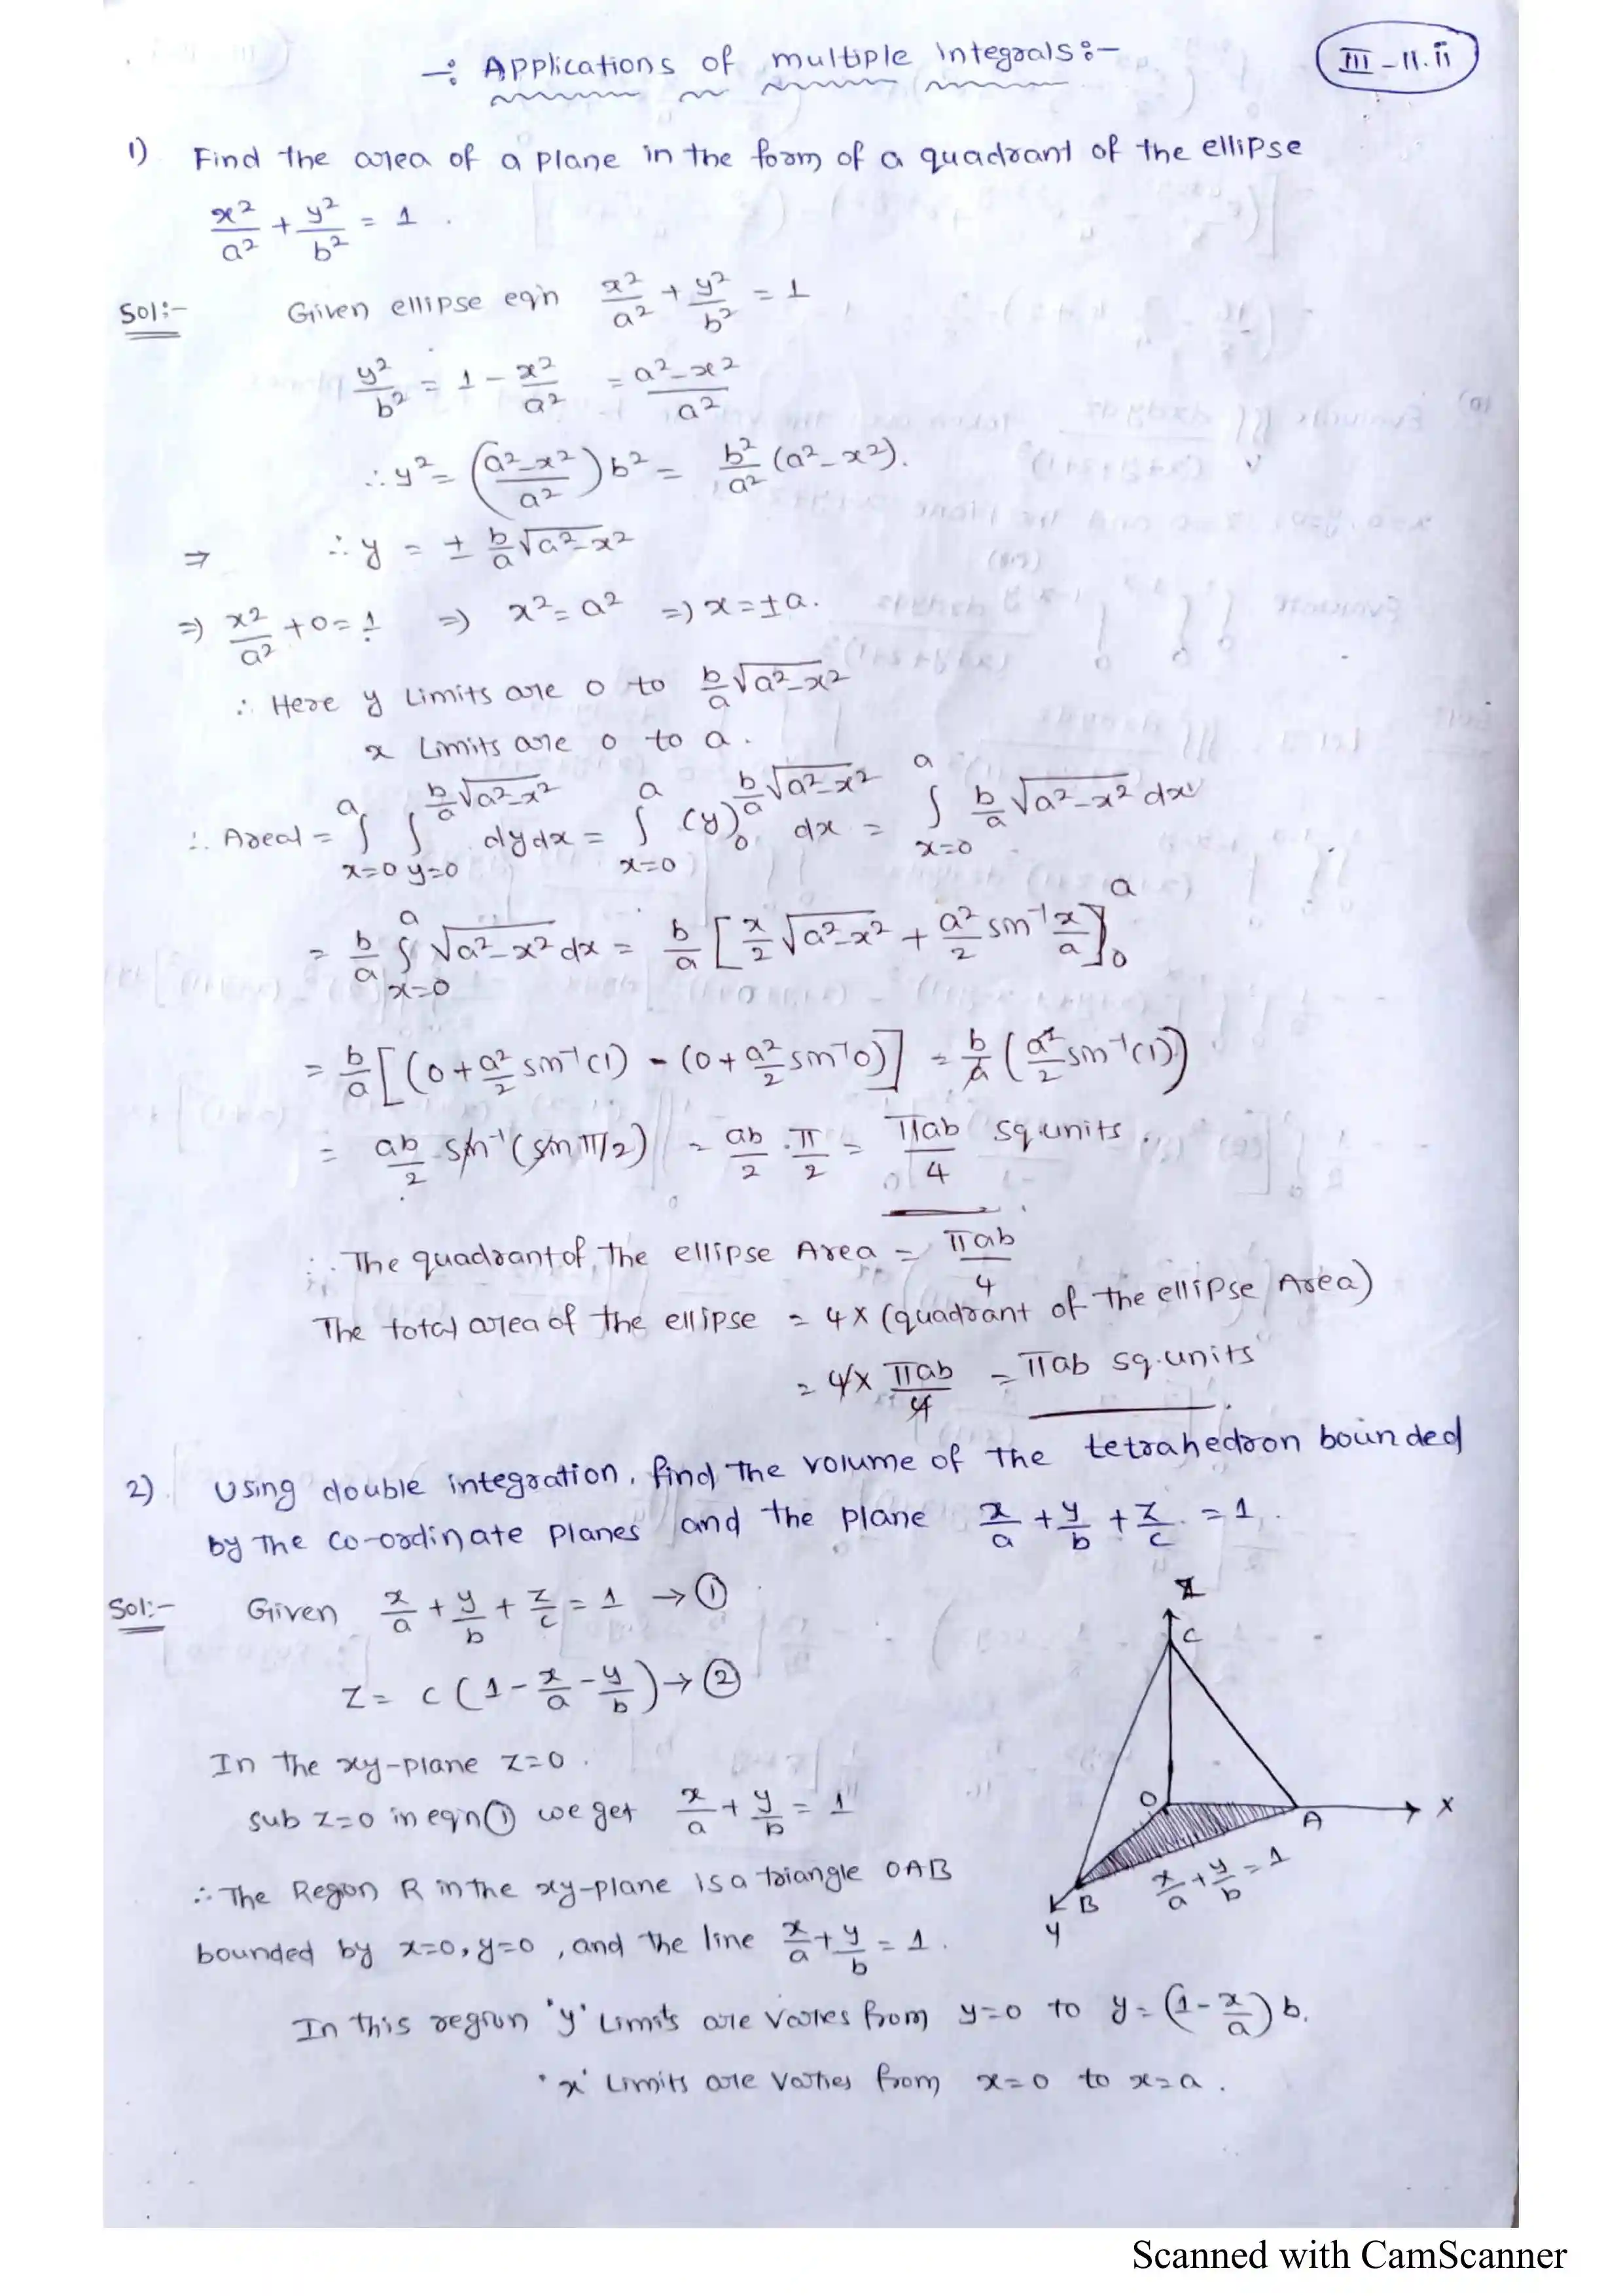 -: Applications of multiple integrals:-
III-11.ii
1) Find the area of a plane in the form of a quadrant of the ellipse
x²/a² + y²/b² = 1.
Sol:- Given ellipse eqn x²/a² + y²/b² = 1
y²/b² = 1 - x²/a² = (a²-x²)/a²
∴ y² = ((a²-x²)/a²) b² = b²/a² (a²-x²).
⇒ ∴ y = ± b/a √(a²-x²)
⇒ x²/a² + 0 = 1 ⇒ x² = a² ⇒ x = ±a.
∴ Here y Limits are 0 to b/a √(a²-x²)
x Limits are 0 to a.
∴ Area = ∫_{x=0}^{a} ∫_{y=0}^{b/a √(a²-x²)} dy dx = ∫_{x=0}^{a} (y)_0^{b/a √(a²-x²)} dx = ∫_{x=0}^{a} b/a √(a²-x²) dx
= b/a ∫_{x=0}^{a} √(a²-x²) dx = b/a [x/2 √(a²-x²) + a²/2 sin⁻¹ x/a]_0^a
= b/a [(0 + a²/2 sin⁻¹(1) - (0 + a²/2 sin⁻¹0)] = b/a (a²/2 sin⁻¹(1))
= ab/2 sin⁻¹(sin π/2) = ab/2 · π/2 = πab/4 sq.units.
∴ The quadrant of the ellipse Area = πab/4
The total area of the ellipse = 4 x (quadrant of the ellipse Area)
= 4 x πab/4 = πab sq.units
2) Using double integration, find the volume of the tetrahedron bounded
by the co-ordinate planes and the plane x/a + y/b + z/c = 1.
Sol:- Given x/a + y/b + z/c = 1 → ①
z = c (1 - x/a - y/b) → ②
In the xy-plane z=0.
sub z=0 in eqn ① we get x/a + y/b = 1
∴ The Regon R in the xy-plane is a triangle OAB
bounded by x=0, y=0, and the line x/a + y/b = 1.
In this region 'y' Limits are varies from y=0 to y = (1 - x/a) b.
'x' Limits are varies from x=0 to x=a.
Z
C
O
A
X
B
Y
x/a + y/b = 1
Scanned with CamScanner